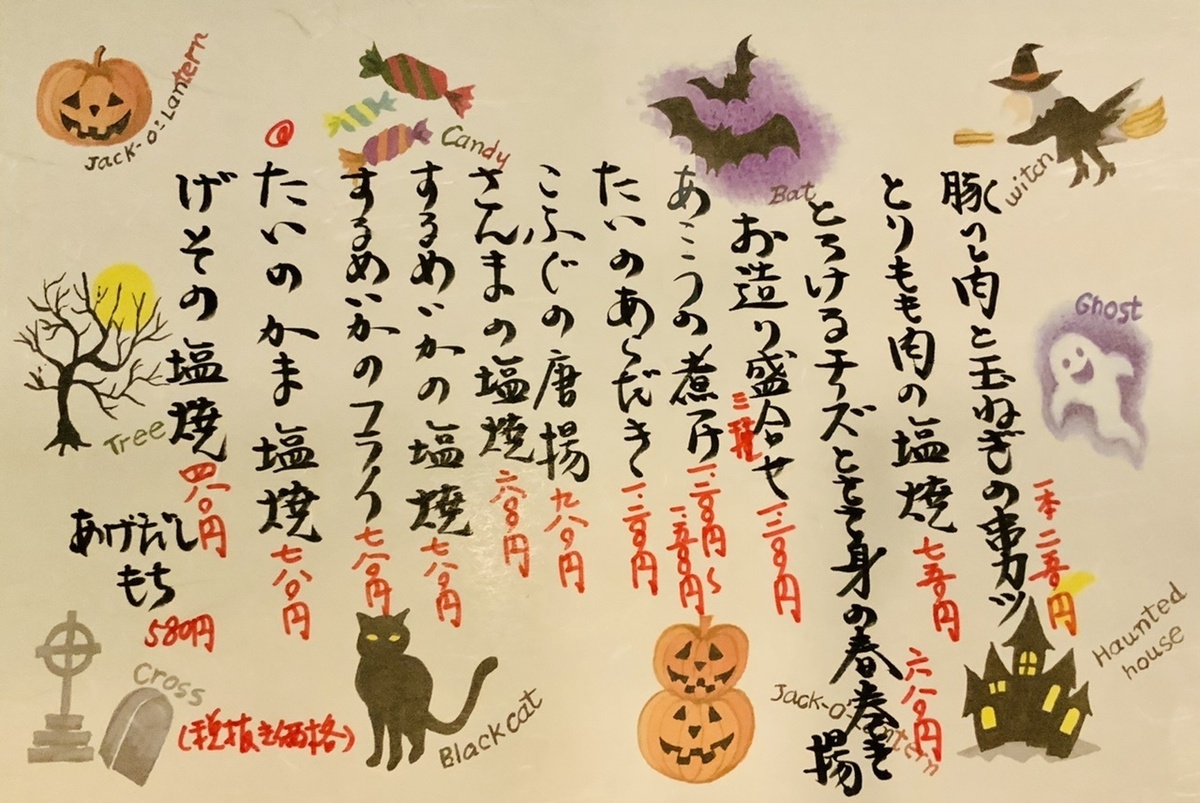 豚ヒレ肉と玉ねぎの串カツ 一本 二五〇円
とりもも肉の塩焼 七五〇円
とろけるチーズとささ身の春巻き揚 六八〇円
お造り盛合せ 三種
あこうの煮付 一、二〇〇円〜一、五〇〇円
たいのあらだき 一、二〇〇円
こふぐの唐揚 九八〇円
さんまの塩焼 六八〇円
するめいかの塩焼 七八〇円
するめいかのフライ 七八〇円
たいのかま塩焼 七八〇円
げその塩焼 四八〇円
あげだし
もち
580円
(税抜き価格)
Jack-o'-Lantern
Candy
Bat
witch
Ghost
Tree
Haunted
house
Cross
Black cat
Jack-o'-Lantern